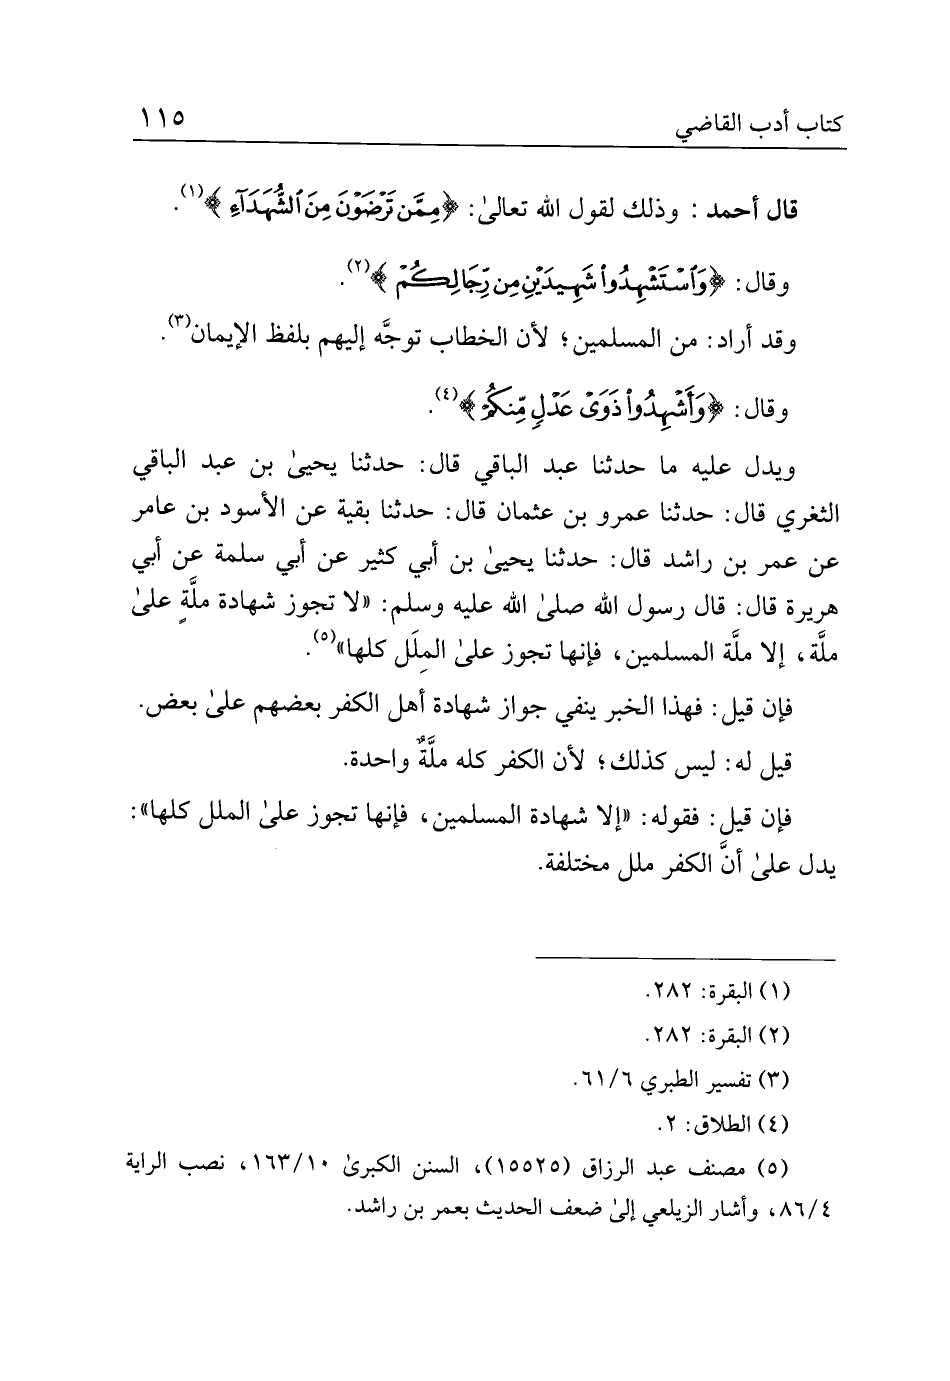 كتاب أدب القاضي ١١٥
قال أحمد : وذلك لقول الله تعالىٰ: ﴿مِمَّن تَرْضَوْنَ مِنَ ٱلشُّهَدَآءِ﴾(١).
وقال: ﴿وَٱسْتَشْهِدُواْ شَهِيدَيْنِ مِن رِّجَالِكُمْ﴾(٢).
وقد أراد: من المسلمين؛ لأن الخطاب توجَّه إليهم بلفظ الإيمان(٣).
وقال: ﴿وَأَشْهِدُواْ ذَوَىْ عَدْلٍ مِّنكُمْ﴾(٤).
ويدل عليه ما حدثنا عبد الباقي قال: حدثنا يحيىٰ بن عبد الباقي
الثغري قال: حدثنا عمرو بن عثمان قال: حدثنا بقية عن الأسود بن عامر
عن عمر بن راشد قال: حدثنا يحيىٰ بن أبي كثير عن أبي سلمة عن أبي
هريرة قال: قال رسول الله صلىٰ الله عليه وسلم: «لا تجوز شهادة ملَّةٍ علىٰ
ملَّة، إلا ملَّة المسلمين، فإنها تجوز علىٰ المِلَل كلها»(٥).
فإن قيل: فهذا الخبر ينفي جواز شهادة أهل الكفر بعضهم علىٰ بعض.
قيل له: ليس كذلك؛ لأن الكفر كله ملَّةٌ واحدة.
فإن قيل: فقوله: «إلا شهادة المسلمين، فإنها تجوز علىٰ الملل كلها»:
يدل علىٰ أنَّ الكفر ملل مختلفة.
(١) البقرة: ٢٨٢.
(٢) البقرة: ٢٨٢.
(٣) تفسير الطبري ٦١/٦.
(٤) الطلاق: ٢.
(٥) مصنف عبد الرزاق (١٥٥٢٥)، السنن الكبرىٰ ١٦٣/١٠، نصب الراية
٨٦/٤، وأشار الزيلعي إلىٰ ضعف الحديث بعمر بن راشد.